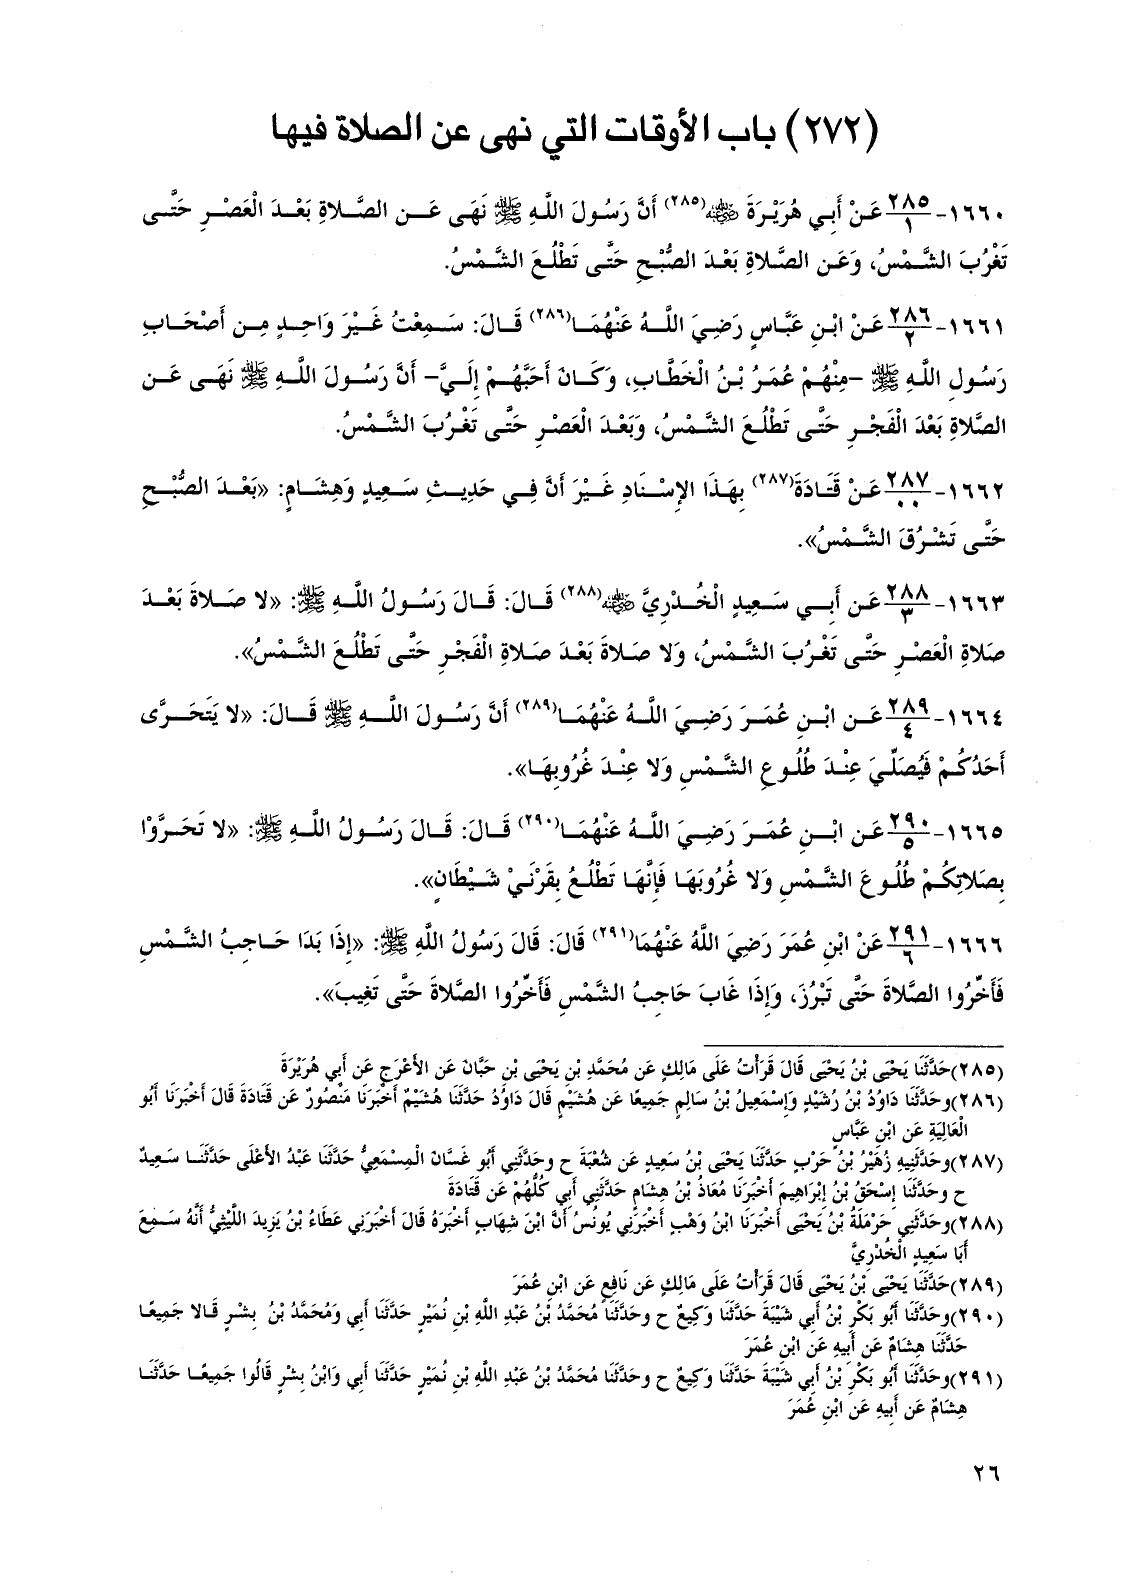 (٢٧٢) باب الأوقات التي نهى عن الصلاة فيها
١٦٦٠- ٢٨٥/١ عَنْ أَبِي هُرَيْرَةَ ﵁(٢٨٥) أَنَّ رَسُولَ اللَّهِ ﷺ نَهَى عَنِ الصَّلاةِ بَعْدَ الْعَصْرِ حَتَّى
تَغْرُبَ الشَّمْسُ، وَعَنِ الصَّلاةِ بَعْدَ الصُّبْحِ حَتَّى تَطْلُعَ الشَّمْسُ.
١٦٦١- ٢٨٦/٢ عَنْ ابْنِ عَبَّاسٍ رَضِيَ اللَّهُ عَنْهُمَا(٢٨٦) قَالَ: سَمِعْتُ غَيْرَ وَاحِدٍ مِنِ أَصْحَابِ
رَسُولِ اللَّهِ ﷺ -مِنْهُمْ عُمَرُ بْنُ الْخَطَّابِ، وَكَانَ أَحَبَّهُمْ إِلَيَّ- أَنَّ رَسُولَ اللَّهِ ﷺ نَهَى عَنِ
الصَّلاةِ بَعْدَ الْفَجْرِ حَتَّى تَطْلُعَ الشَّمْسُ، وَبَعْدَ الْعَصْرِ حَتَّى تَغْرُبَ الشَّمْسُ.
١٦٦٢- ٢٨٧/٠٠ عَنْ قَتَادَةَ(٢٨٧) بِهَذَا الإِسْنَادِ غَيْرَ أَنَّ فِي حَدِيثِ سَعِيدٍ وَهِشَامٍ: «بَعْدَ الصُّبْحِ
حَتَّى تَشْرُقَ الشَّمْسُ».
١٦٦٣- ٢٨٨/٣ عَنِ أَبِي سَعِيدٍ الْخُدْرِيَّ ﵁(٢٨٨) قَالَ: قَالَ رَسُولُ اللَّهِ ﷺ: «لا صَلاةَ بَعْدَ
صَلاةِ الْعَصْرِ حَتَّى تَغْرُبَ الشَّمْسُ، وَلا صَلاةَ بَعْدَ صَلاةِ الْفَجْرِ حَتَّى تَطْلُعَ الشَّمْسُ».
١٦٦٤- ٢٨٩/٤ عَنِ ابْنِ عُمَرَ رَضِيَ اللَّهُ عَنْهُمَا(٢٨٩) أَنَّ رَسُولَ اللَّهِ ﷺ قَالَ: «لا يَتَحَرَّى
أَحَدُكُمْ فَيُصَلِّيَ عِنْدَ طُلُوعِ الشَّمْسِ وَلا عِنْدَ غُرُوبِهَا».
١٦٦٥- ٢٩٠/٥ عَنِ ابْنِ عُمَرَ رَضِيَ اللَّهُ عَنْهُمَا(٢٩٠) قَالَ: قَالَ رَسُولُ اللَّهِ ﷺ: «لا تَحَرَّوْا
بِصَلاتِكُمْ طُلُوعَ الشَّمْسِ وَلا غُرُوبَهَا فَإِنَّهَا تَطْلُعُ بِقَرْنَيْ شَيْطَانٍ».
١٦٦٦- ٢٩١/٦ عَنْ ابْنِ عُمَرَ رَضِيَ اللَّهُ عَنْهُمَا(٢٩١) قَالَ: قَالَ رَسُولُ اللَّهِ ﷺ: «إِذَا بَدَا حَاجِبُ الشَّمْسِ
فَأَخِّرُوا الصَّلاةَ حَتَّى تَبْرُزَ، وَإِذَا غَابَ حَاجِبُ الشَّمْسِ فَأَخِّرُوا الصَّلاةَ حَتَّى تَغِيبَ».
(٢٨٥)حَدَّثَنَا يَحْيَى بْنُ يَحْيَى قَالَ قَرَأْتُ عَلَى مَالِكٍ عَن مُحَمَّدِ بْنِ يَحْيَى بْنِ حَبَّانَ عَن الأَعْرَجِ عَن أَبِي هُرَيْرَةَ
(٢٨٦)وحَدَّثَنَا دَاوُدُ بْنُ رُشَيْدٍ وَإِسْمَعِيلُ بْنُ سَالِمٍ جَمِيعًا عَن هُشَيْمٍ قَالَ دَاوُدُ حَدَّثَنَا هُشَيْمٌ أَخْبَرَنَا مَنْصُورٌ عَن قَتَادَةَ قَالَ أَخْبَرَنَا أَبُو
الْعَالِيَةِ عَن ابْنِ عَبَّاسٍ
(٢٨٧)وحَدَّثَنِيهِ زُهَيْرُ بْنُ حَرْبٍ حَدَّثَنَا يَحْيَى بْنُ سَعِيدٍ عَن شُعْبَةَ ح وحَدَّثَنِي أَبُو غَسَّانَ الْمِسْمَعِيُّ حَدَّثَنَا عَبْدُ الأَعْلَى حَدَّثَنَا سَعِيدٌ
ح وحَدَّثَنَا إِسْحَقُ بْنُ إِبْرَاهِيمَ أَخْبَرَنَا مُعَاذُ بْنُ هِشَامٍ حَدَّثَنِي أَبِي كُلُّهُمْ عَن قَتَادَةَ
(٢٨٨)وحَدَّثَنِي حَرْمَلَةُ بْنُ يَحْيَى أَخْبَرَنَا ابْنُ وَهْبٍ أَخْبَرَنِي يُونُسُ أَنَّ ابْنَ شِهَابٍ أَخْبَرَهُ قَالَ أَخْبَرَنِي عَطَاءُ بْنُ يَزِيدَ اللَّيْثِيُّ أَنَّهُ سَمِعَ
أَبَا سَعِيدٍ الْخُدْرِيَّ
(٢٨٩)حَدَّثَنَا يَحْيَى بْنُ يَحْيَى قَالَ قَرَأْتُ عَلَى مَالِكٍ عَن نَافِعٍ عَن ابْنِ عُمَرَ
(٢٩٠)وحَدَّثَنَا أَبُو بَكْرِ بْنُ أَبِي شَيْبَةَ حَدَّثَنَا وَكِيعٌ ح وحَدَّثَنَا مُحَمَّدُ بْنُ عَبْدِ اللَّهِ بْنِ نُمَيْرٍ حَدَّثَنَا أَبِي وَمُحَمَّدُ بْنُ بِشْرٍ قَالا جَمِيعًا
حَدَّثَنَا هِشَامٌ عَن أَبِيهِ عَن ابْنِ عُمَرَ
(٢٩١)وحَدَّثَنَا أَبُو بَكْرِ بْنُ أَبِي شَيْبَةَ حَدَّثَنَا وَكِيعٌ ح وحَدَّثَنَا مُحَمَّدُ بْنُ عَبْدِ اللَّهِ بْنِ نُمَيْرٍ حَدَّثَنَا أَبِي وَابْنُ بِشْرٍ قَالُوا جَمِيعًا حَدَّثَنَا
هِشَامٌ عَن أَبِيهِ عَن ابْنِ عُمَرَ
٢٦